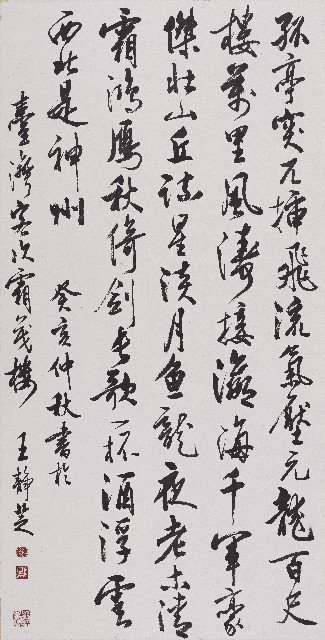 孤亭突兀插飛流氣壓元龍百尺
樓萬里風濤接瀛海千年豪
傑壯山丘疏星淡月魚龍夜老木清
霜鴻鴈秋倚劍長歌一杯酒浮雲
西北是神州 癸亥仲秋書於
臺灣客次霜茂樓 王靜芝